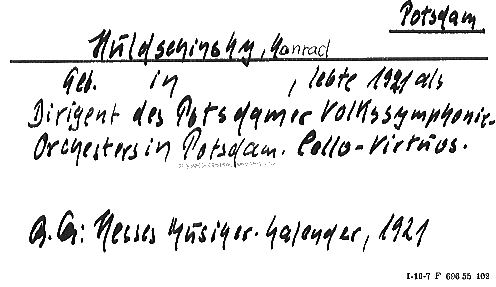 Potsdam.
Huldschinsky, Konrad
Geb. in , lebte 1921 als
Dirigent des Potsdamer Volkssymphonie-
Orchesters in Potsdam. Cello-Virtuos.
Hesses Musiker-Kalender, 1921
I-10-7 F 696 55 102